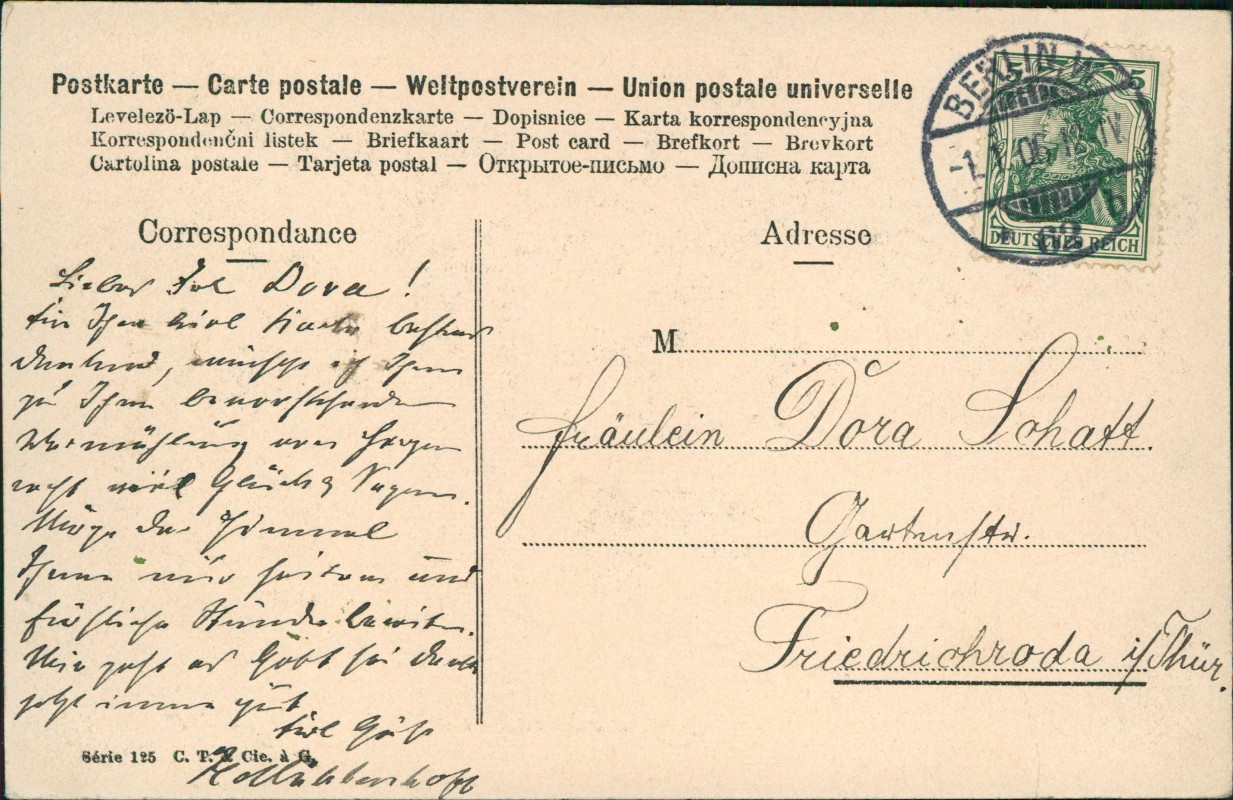 Postkarte — Carte postale — Weltpostverein — Union postale universelle
Levelezö-Lap — Correspondenzkarte — Dopisnice — Karta korrespondencyjna
Korrespondenční listek — Briefkaart — Post card — Brefkort — Brevkort
Cartolina postale — Tarjeta postal — Открытое-письмо — Дописна карта
BERLIN W.
1.1.06.
62
b
5 5
DEUTSCHES REICH
Correspondance
Liebes Frl Dora!
Für Ihre
dankend, wünsche ich Ihnen
zu Ihrer bevorstehenden
Vermählung von Herzen
recht viel Glück & Segen.
Möge der Himmel
Ihnen nur heitere und
fröhliche Stunden bereiten.
Mir geht es Gott sei Dank
jetzt immer gut
Série 125 C. T. & Cie. à G.
Adresse
M
Fräulein Dora Schatt.
Gartenstr.
Friedrichroda i/Thür.